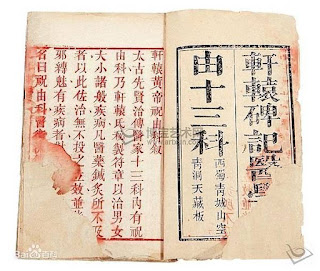 軒轅碑記醫
由十三科
西蜀青城山空
青洞天藏板
軒轅黃帝祝由科敘
太古先賢治傳醫家十三科內有祝
由科乃軒轅氏秘製符章以治男女
大小諸般疾病凡醫藥鍼灸所不及
者以此佐治無不投之立效並能
邪縛魅有疾病者對
名曰祝由科醫
Bai 百科